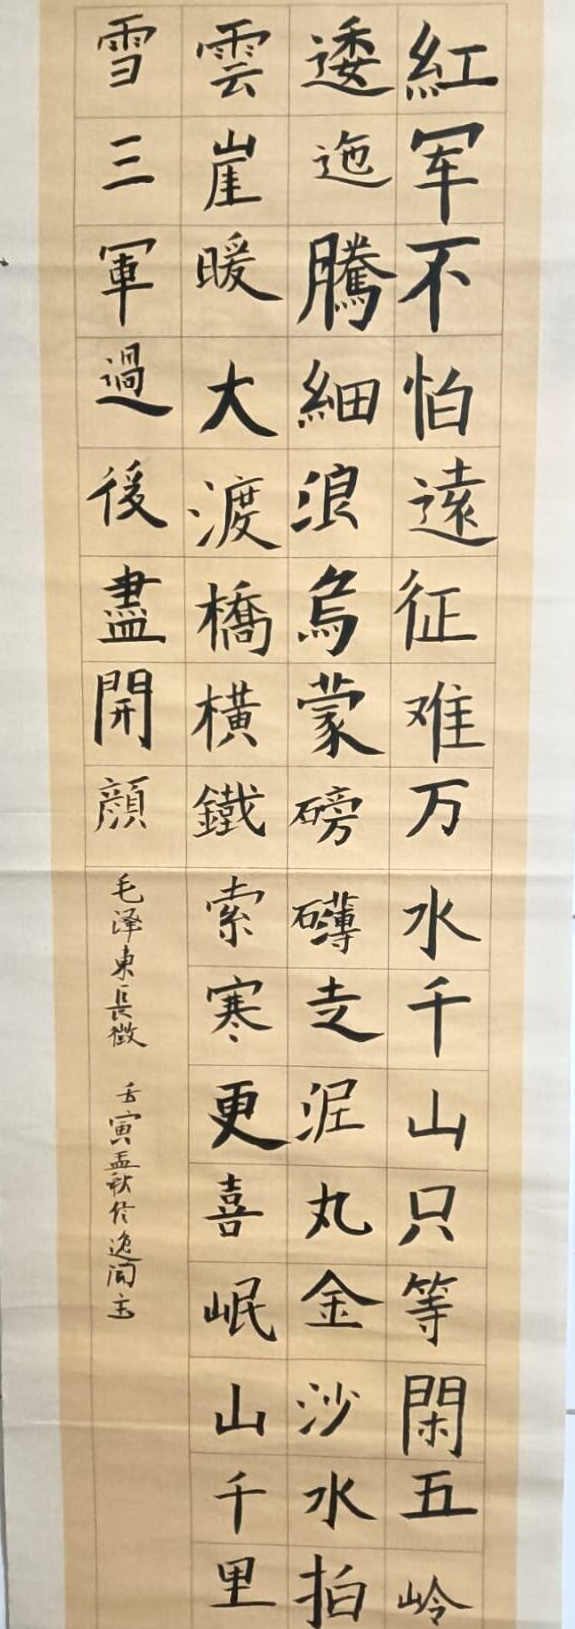 紅军不怕遠征难万水千山只等閑五岭
逶迤騰細浪烏蒙磅礴走泥丸金沙水拍
雲崖暖大渡橋橫鐵索寒更喜岷山千里
雪三軍過後盡開顔
毛泽東長徵 壬寅孟秋於逸闻